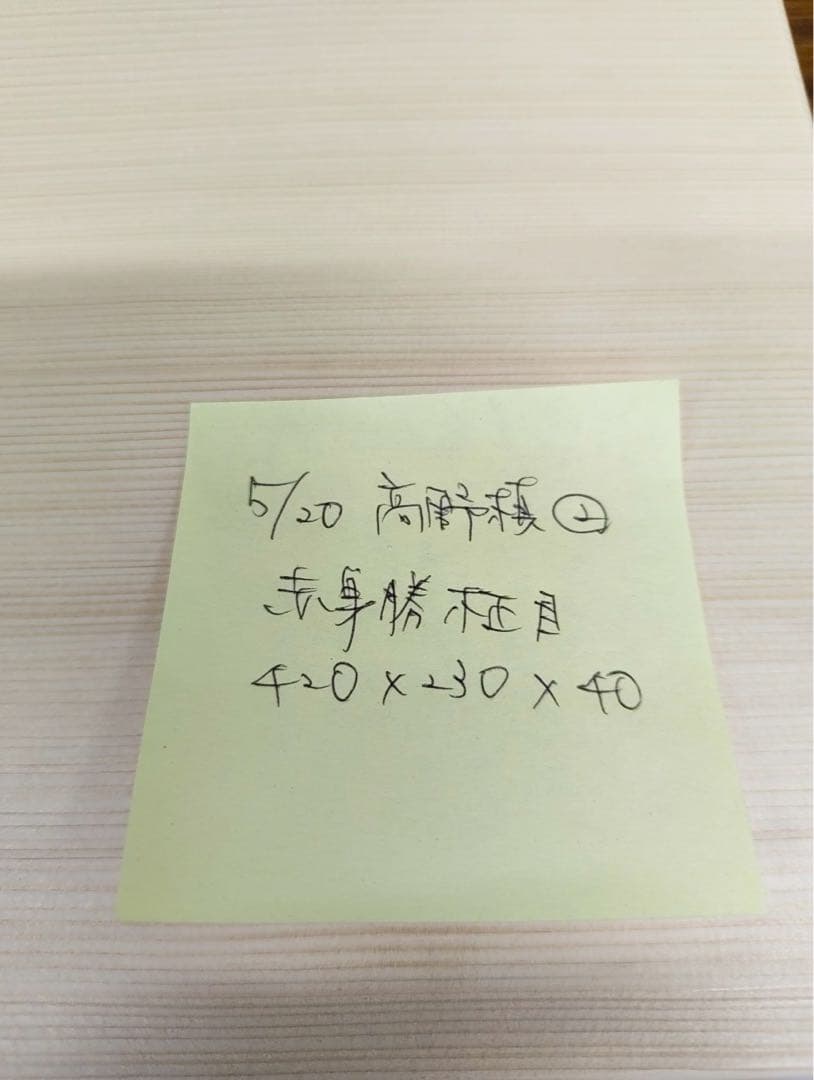 5/20 高野槙㊤
赤身勝柾目
420×230×40